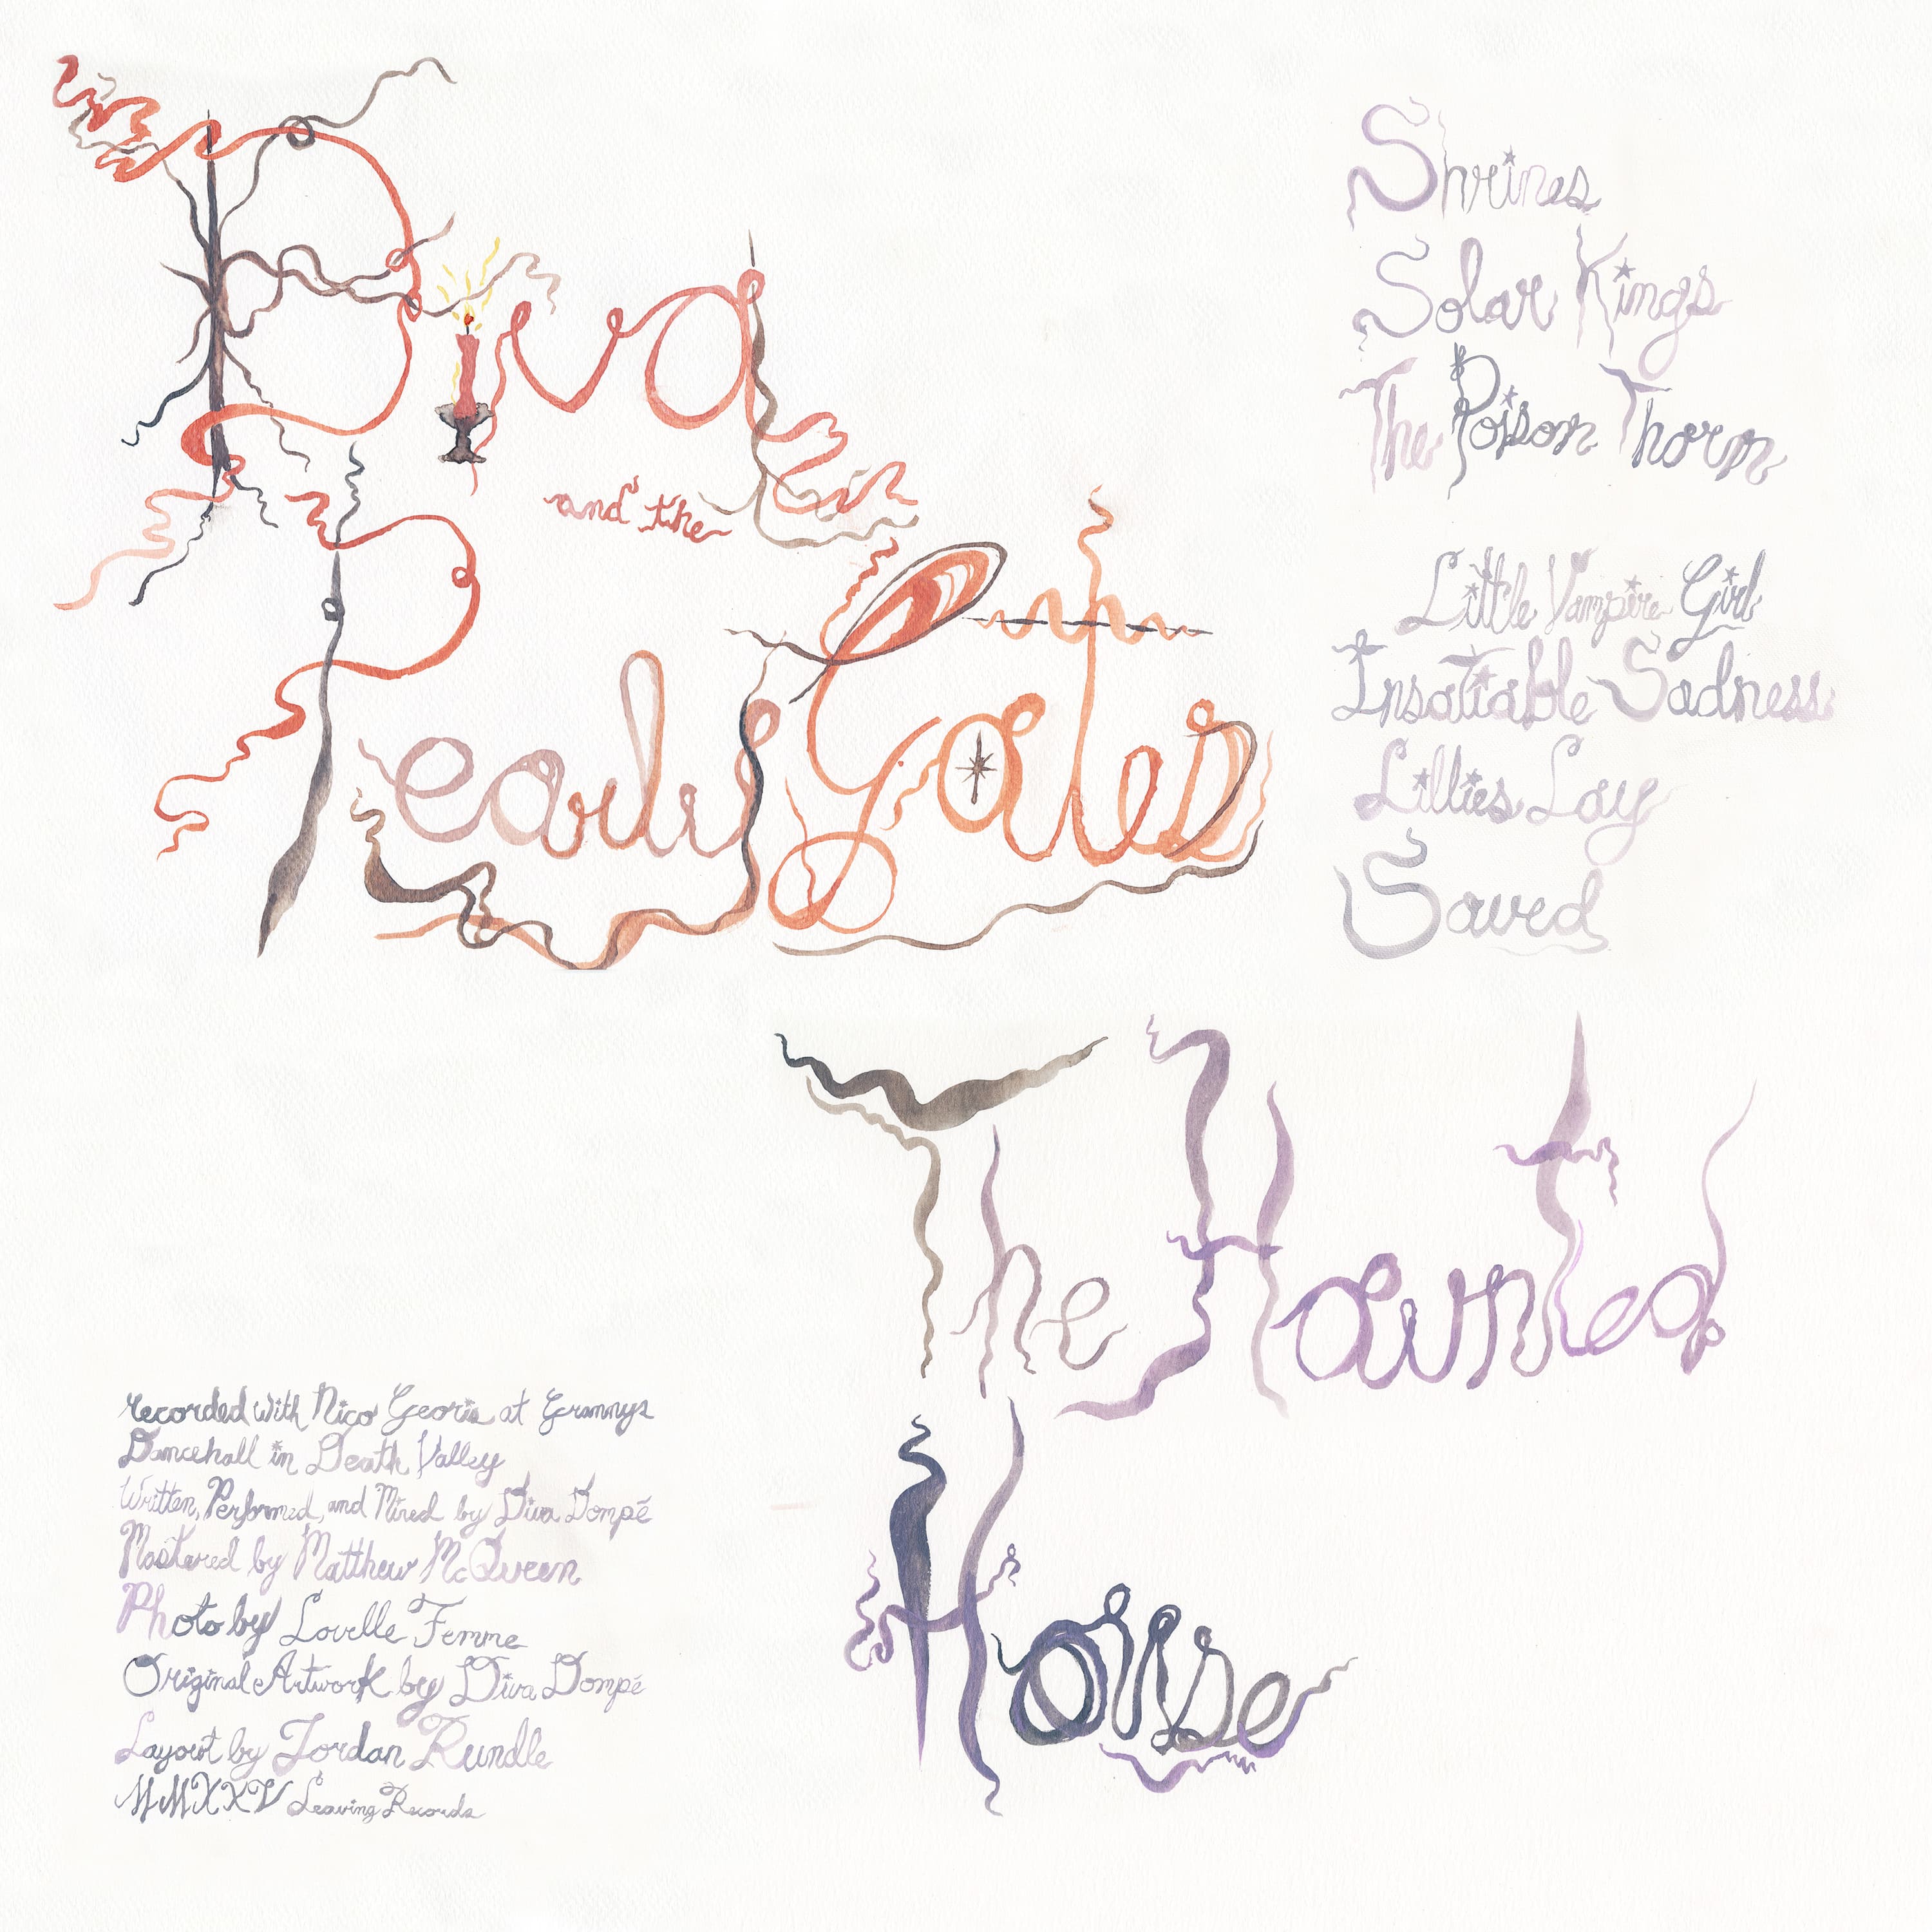 Diva
and the
Pearly Gates
Shrines
Solar Kings
The Poison Thorn
Little Vampire Girl
Insatiable Sadness
Lillies Lay
Saved
The Haunted
House
recorded with Nico Georis at Grannys
Dancehall in Death Valley
Written, Performed, and Mixed by Diva Dompé
Mastered by Matthew McQueen
Photo by Lovelle Femme
Original Artwork by Diva Dompé
Layout by Jordan Rundle
MMXXV Leaving Records